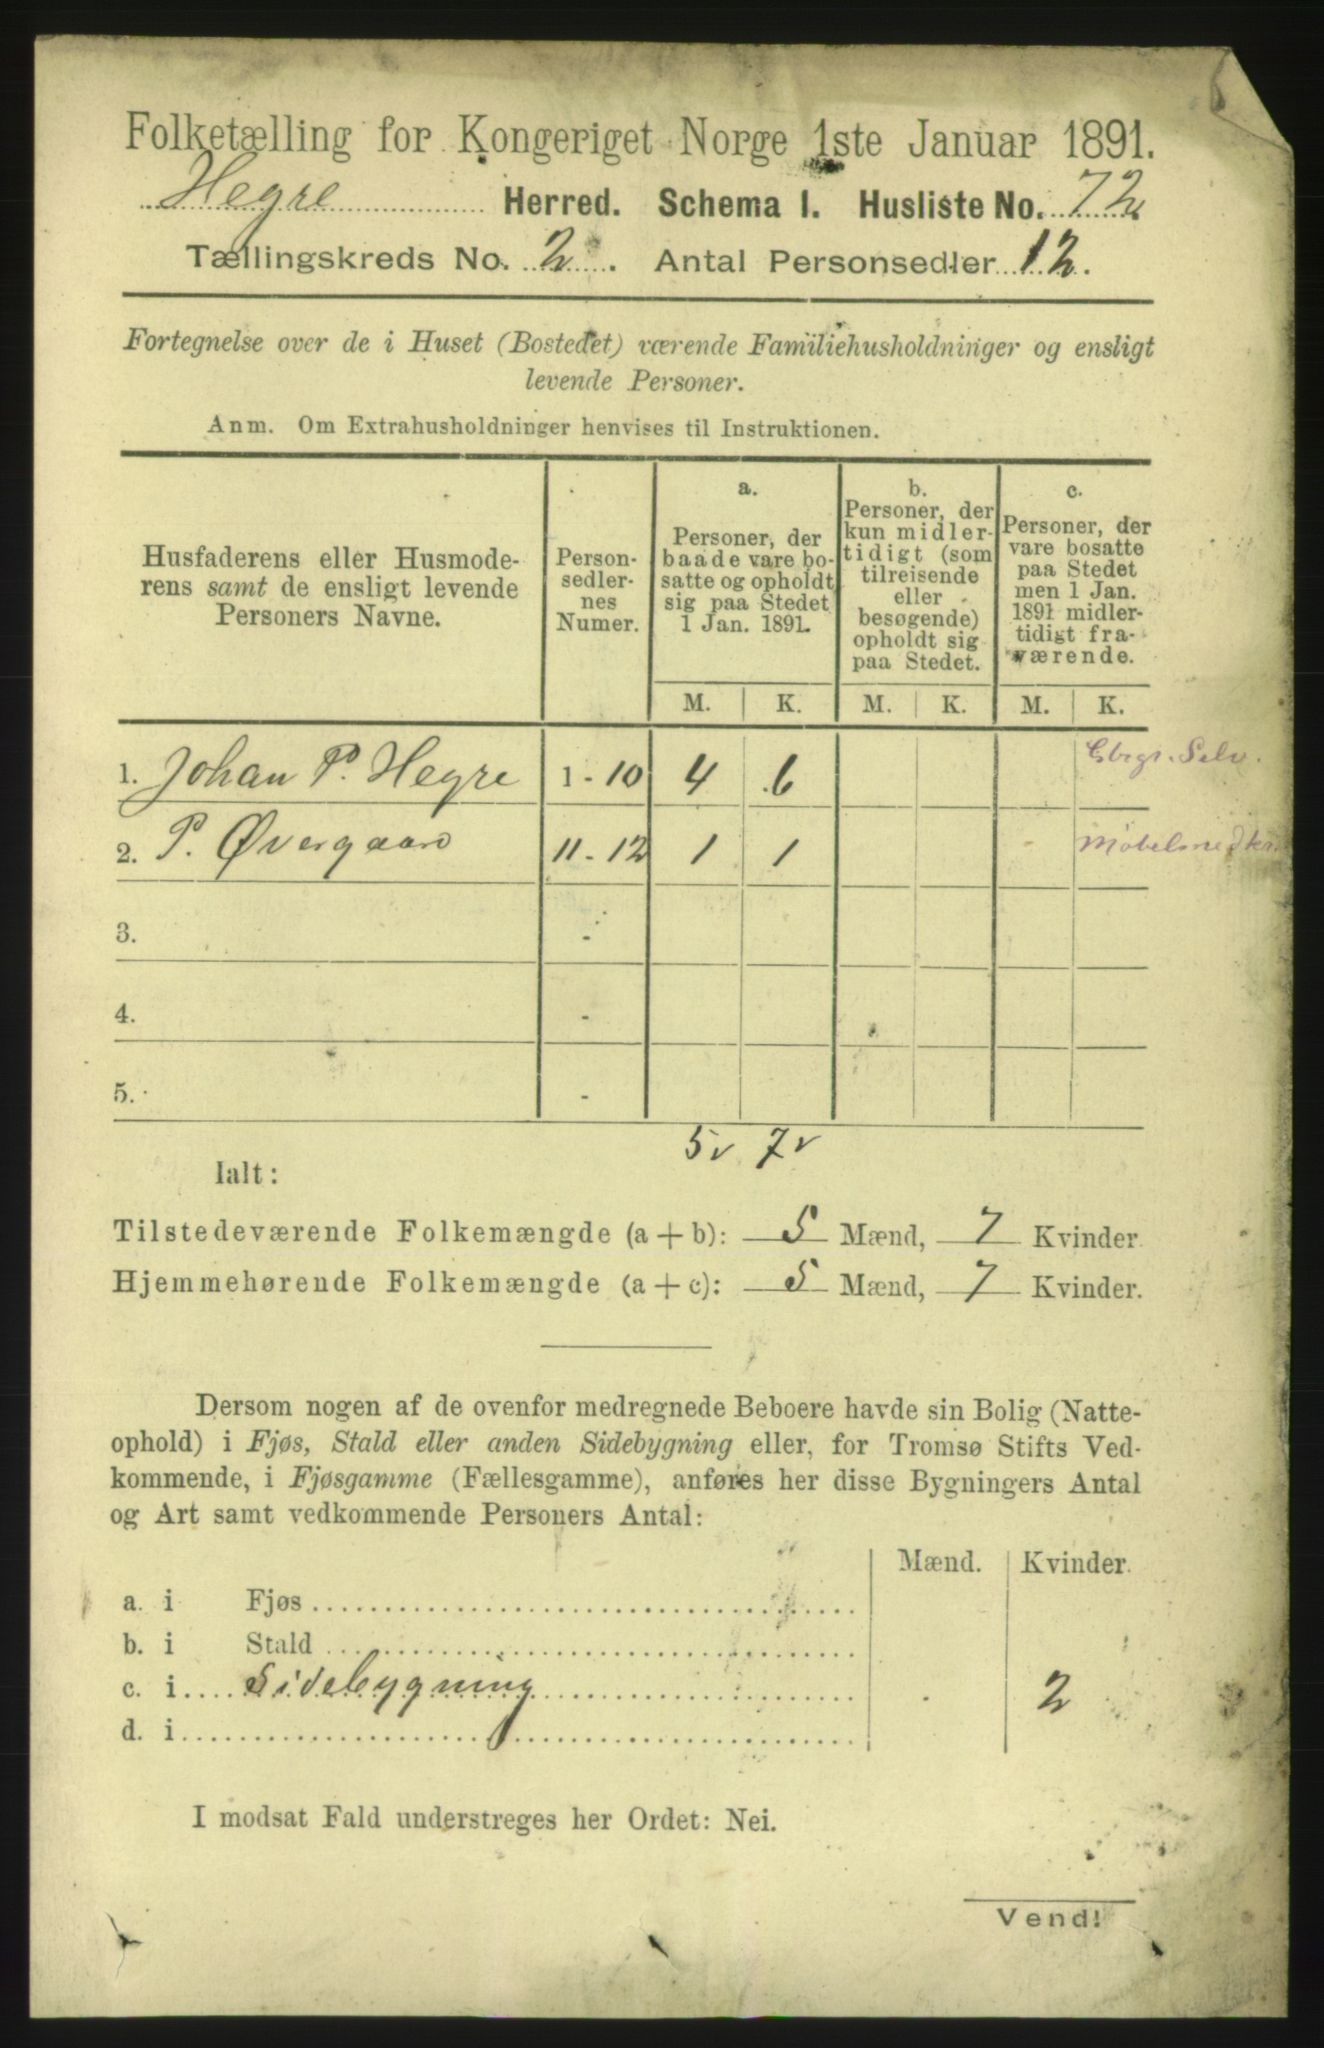 Folketælling for Kongeriget Norge 1ste Januar 1891.
Hegre Herred. Schema I. Husliste No. 72
Tællingskreds No. 2. Antal Personsedler 12.
Fortegnelse over de i Huset (Bostedet) værende Familiehusholdninger og ensligt
levende Personer.
Anm. Om Extrahusholdninger henvises til Instruktionen.
Husfaderens eller Husmode-
rens samt de ensligt levende
Personers Navne.
Person-
sedler-
nes
Numer.
a.
Personer, der
baade vare bo-
satte og opholdt
sig paa Stedet
1 Jan. 1891.
b.
Personer, der
kun midler-
tidigt (som
tilreisende
eller
besøgende)
opholdt sig
paa Stedet.
c.
Personer, der
vare bosatte
paa Stedet
men 1 Jan.
1891 midler-
tidigt fra-
værende.
M. K. M. K. M. K.
1. Johan P. Hegre 1 - 10 4 6 Gbrgr. Selv.
2. P. Øvergaard 11 - 12 1 1
3. -
4. -
5. -
5 v 7 v
Ialt:
Tilstedeværende Folkemængde (a + b): 5 Mænd, 7 Kvinder.
Hjemmehørende Folkemængde (a + c): 5 Mænd, 7 Kvinder.
Dersom nogen af de ovenfor medregnede Beboere havde sin Bolig (Natte-
ophold) i Fjøs, Stald eller anden Sidebygning eller, for Tromsø Stifts Ved-
kommende, i Fjøsgamme (Fællesgamme), anføres her disse Bygningers Antal
og Art samt vedkommende Personers Antal:
Mænd. Kvinder.
a. i Fjøs
b. i Stald
c. i Sidebygning 2
d. i
I modsat Fald understreges her Ordet: Nei.
Vend!